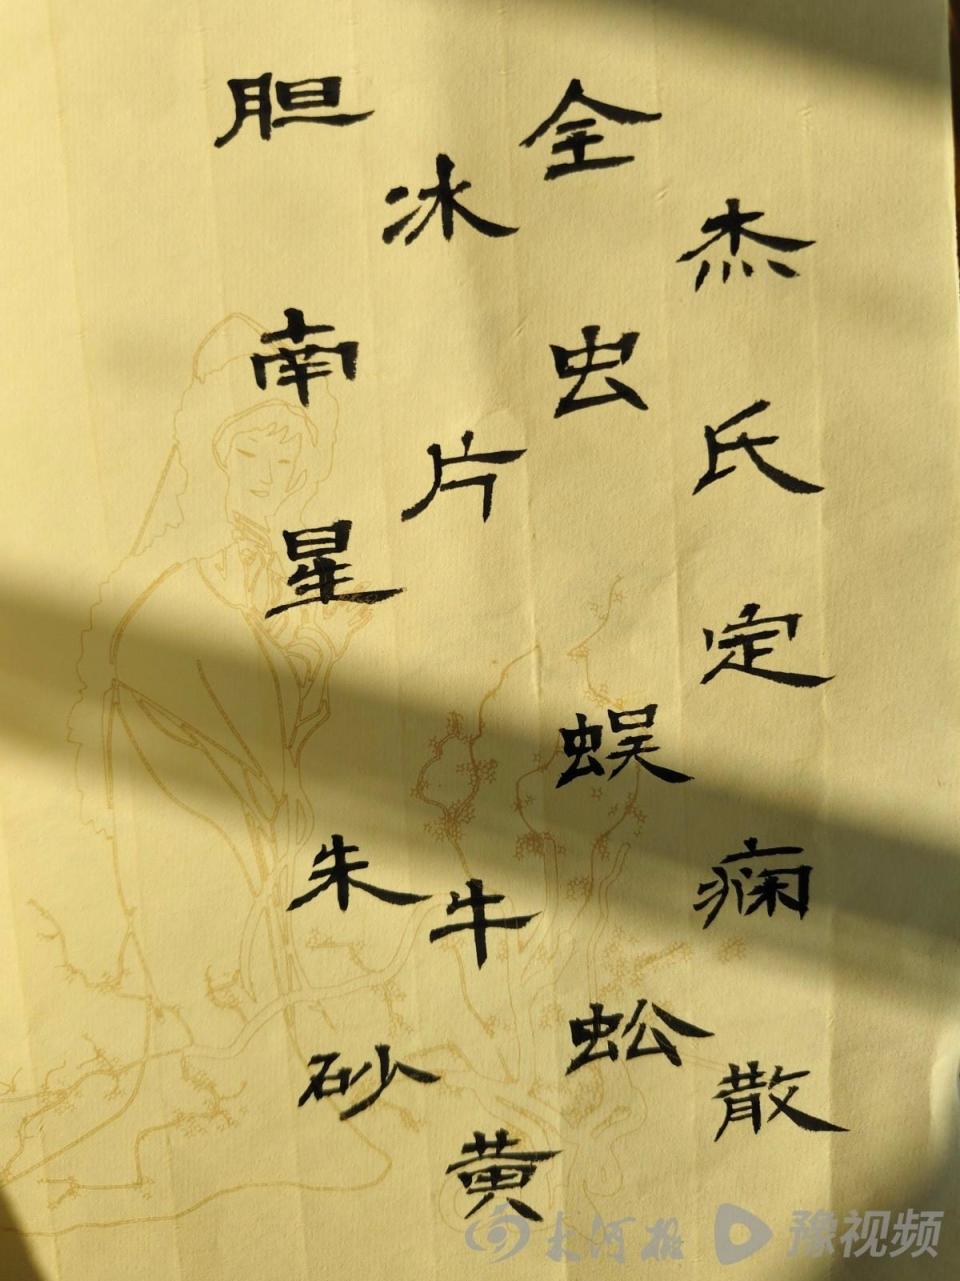 杰氏定痫散
全虫 蜈蚣
冰片 牛黄
胆南星 朱砂
大河报 豫视频